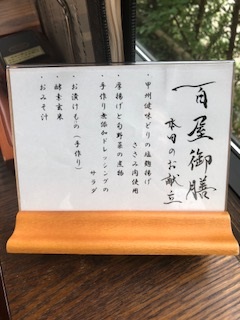 百屋御膳
本日のお献立
・甲州健味どりの塩麹揚げ
ささみ肉使用
・厚揚げと旬野菜の煮物
・手作り無添加ドレッシングの
サラダ
・お漬けもの(手作り)
・酵素玄米
・おみそ汁